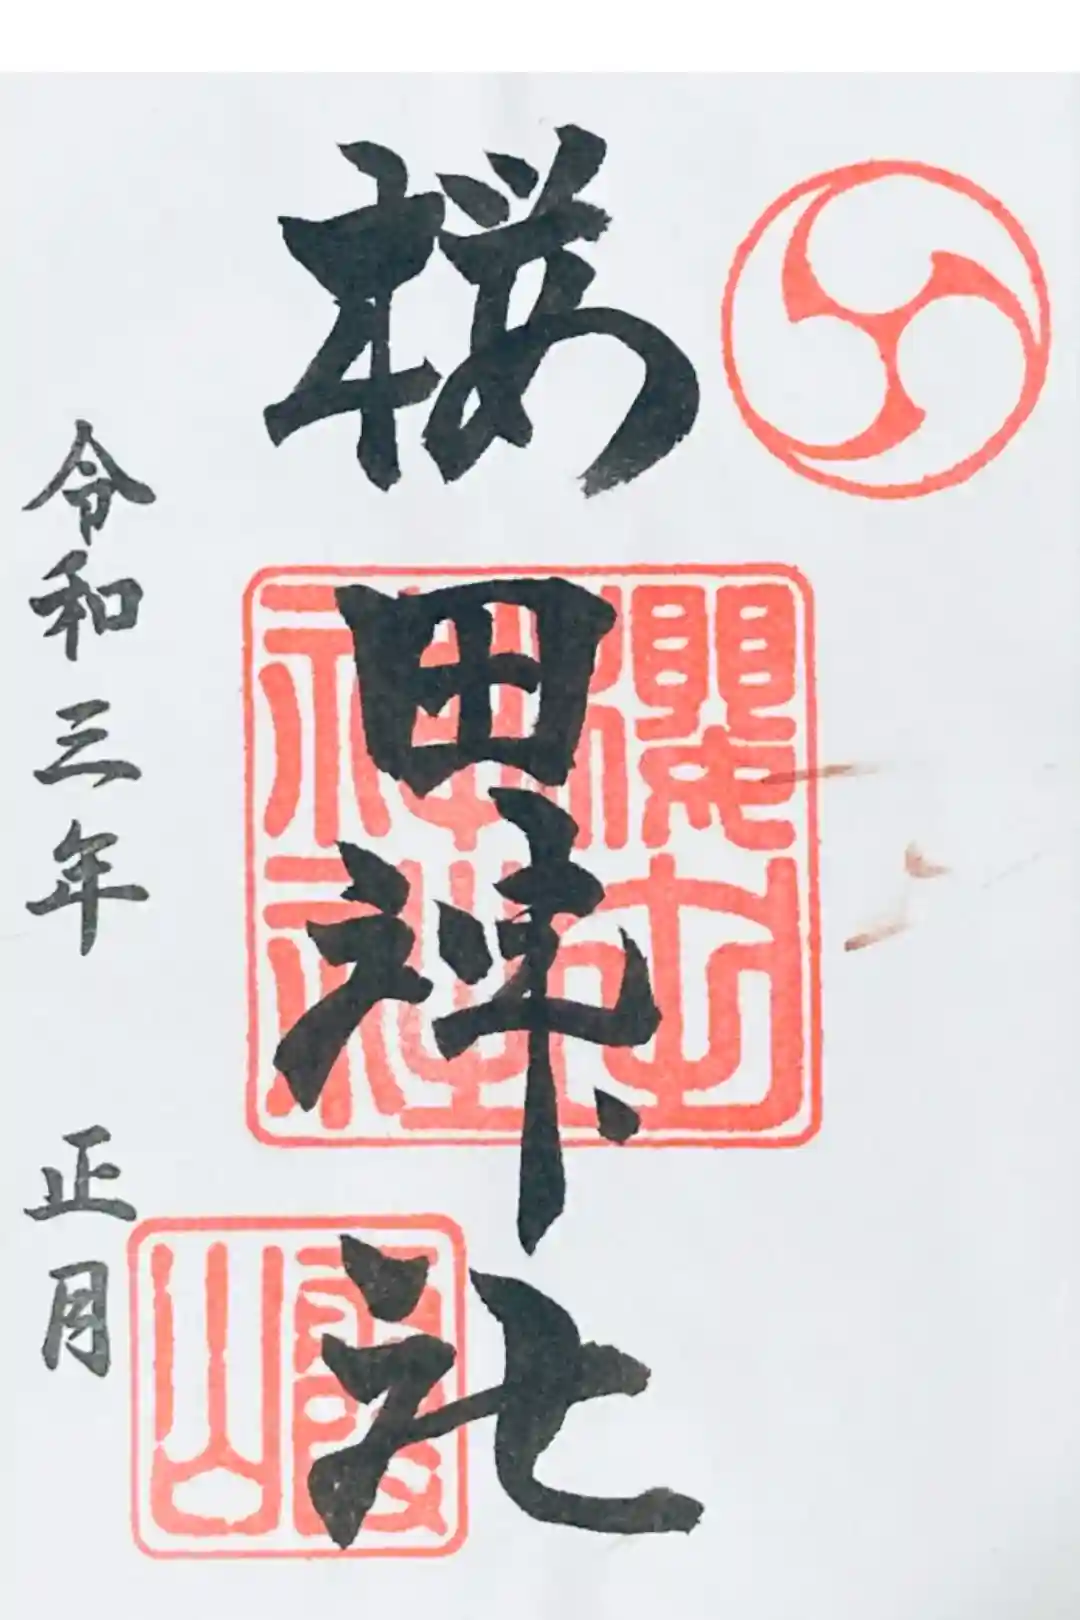 桜田神社
櫻田
神社
霞山
令和三年 正月